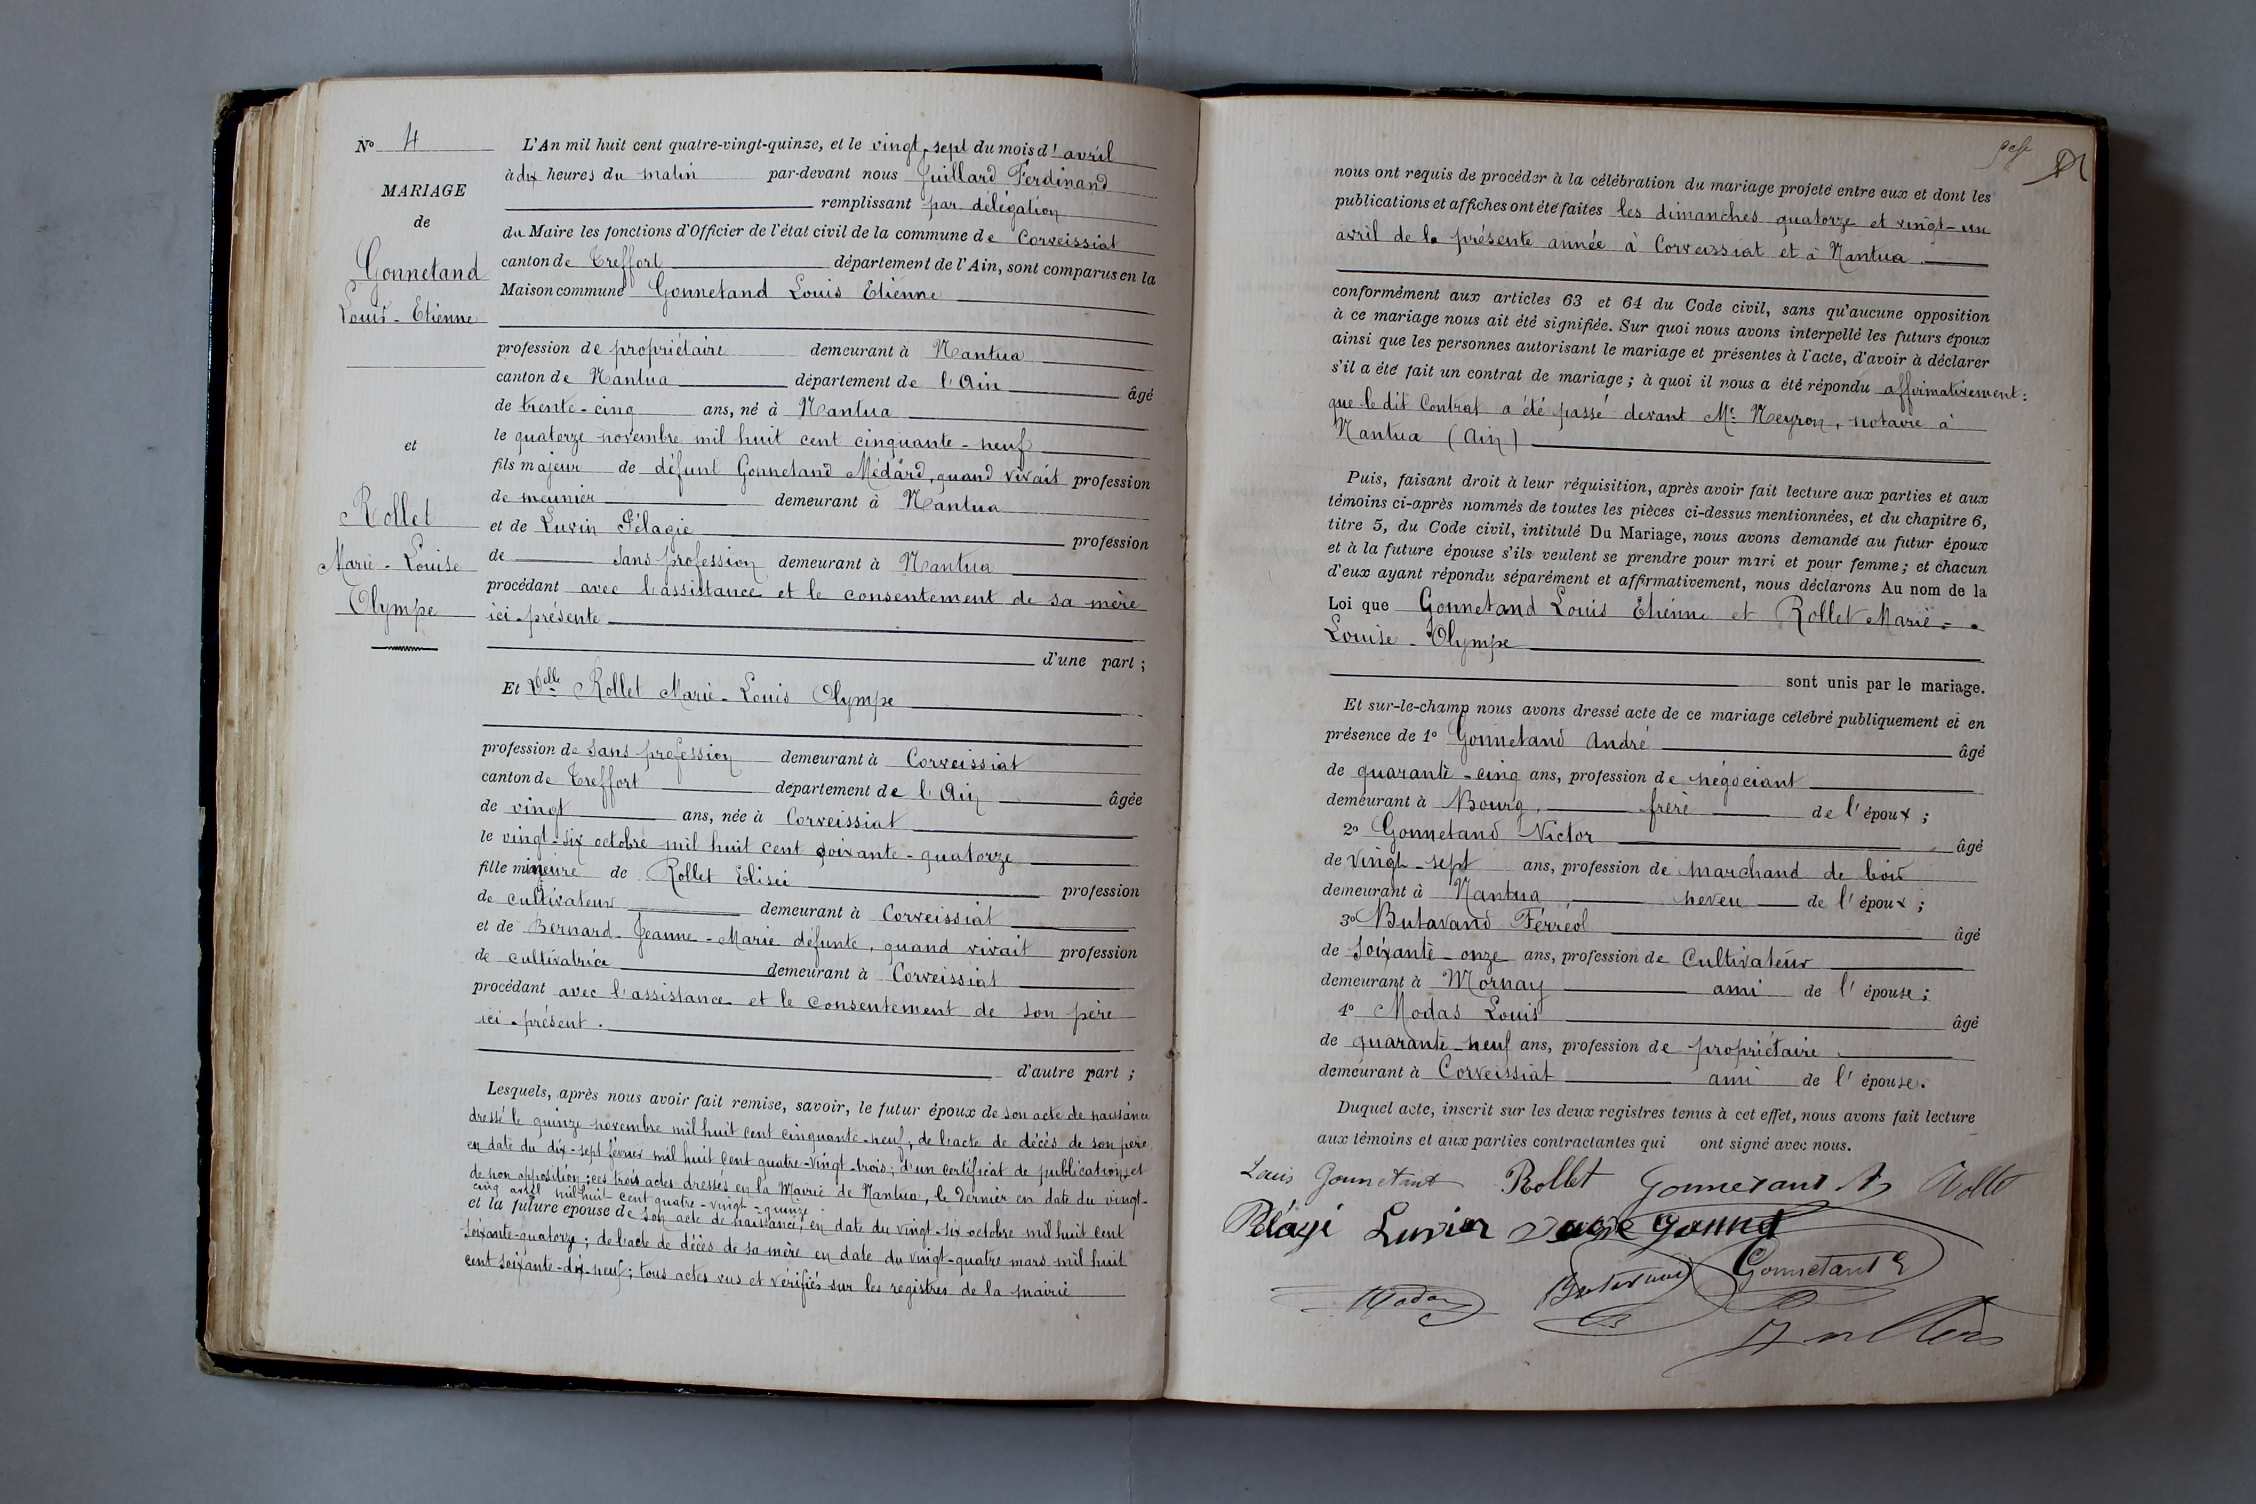 Nº 4
MARIAGE
de
Gonnetand
Louis-Etienne
et
Rollet
Marie-Louise
Olympe
L'An mil huit cent quatre-vingt-quinze, et le vingt-sept du mois d'avril
à dix heures du matin par-devant nous Juillard Ferdinand
remplissant par délégation
du Maire les fonctions d'Officier de l'état civil de la commune de Corveissiat
canton de Treffort département de l'Ain, sont comparus en la
Maison commune Gonnetand Louis Etienne
profession de propriétaire demeurant à Nantua
canton de Nantua département de l'Ain âgé
de trente-cinq ans, né à Nantua
le quatorze novembre mil huit cent cinquante-neuf
fils majeur de défunt Gonnetand Médard, quand vivait profession
de meunier demeurant à Nantua
et de Luvin Pélagie profession
de sans profession demeurant à Nantua
procédant avec l'assistance et le consentement de sa mère
ici-présente
d'une part ;
Et Delle Rollet Marie-Louis Olympe
profession de sans profession demeurant à Corveissiat
canton de Treffort département de l'Ain âgée
de vingt ans, née à Corveissiat
le vingt-six octobre mil huit cent soixante-quatorze
fille mineure de Rollet Elisée profession
de cultivateur demeurant à Corveissiat
et de Bernard-Jeanne-Marie défunte, quand vivait profession
de cultivatrice demeurant à Corveissiat
procédant avec l'assistance et le consentement de son père
ici-présent.
d'autre part ;
Lesquels, après nous avoir fait remise, savoir, le futur époux de son acte de naissance
dressé le quinze novembre mil huit cent cinquante-neuf, de l'acte de décès de son père
en date du dix-sept février mil huit cent quatre-vingt-trois ; d'un certificat de publications et
de non opposition ; ces trois actes dressés en la Mairie de Nantua, le dernier en date du vingt-
cinq avril mil huit cent quatre-vingt-quinze
et la future épouse de son acte de naissance, en date du vingt-six octobre mil huit cent
soixante-quatorze ; de l'acte de décès de sa mère en date du vingt-quatre mars mil huit
cent soixante-dix-neuf ; tous actes vus et vérifiés sur les registres de la mairie
nous ont requis de procéder à la célébration du mariage projeté entre eux et dont les
publications et affiches ont été faites les dimanches quatorze et vingt-un
avril de la présente année à Corveissiat et à Nantua.
conformément aux articles 63 et 64 du Code civil, sans qu'aucune opposition
à ce mariage nous ait été signifiée. Sur quoi nous avons interpellé les futurs époux
ainsi que les personnes autorisant le mariage et présentes à l'acte, d'avoir à déclarer
s'il a été fait un contrat de mariage ; à quoi il nous a été répondu affirmativement :
que le dit Contrat a été passé devant Me Neyron, notaire à
Nantua (Ain)
Puis, faisant droit à leur réquisition, après avoir fait lecture aux parties et aux
témoins ci-après nommés de toutes les pièces ci-dessus mentionnées, et du chapitre 6,
titre 5, du Code civil, intitulé Du Mariage, nous avons demandé au futur époux
et à la future épouse s'ils veulent se prendre pour mari et pour femme ; et chacun
d'eux ayant répondu séparément et affirmativement, nous déclarons Au nom de la
Loi que Gonnetand Louis Etienne et Rollet Marie-
Louise-Olympe
sont unis par le mariage.
Et sur-le-champ nous avons dressé acte de ce mariage célébré publiquement et en
présence de 1º Gonnetand André âgé
de quarante-cinq ans, profession de négociant
demeurant à Bourg, frère de l'époux ;
2º Gonnetand Victor âgé
de vingt-sept ans, profession de marchand de bois
demeurant à Nantua neveu de l'époux ;
3º Butavand Férréol âgé
de soixante-onze ans, profession de Cultivateur
demeurant à Mornay ami de l'épouse ;
4º Modas Louis âgé
de quarante-neuf ans, profession de propriétaire
demeurant à Corveissiat ami de l'épouse.
Duquel acte, inscrit sur les deux registres tenus à cet effet, nous avons fait lecture
aux témoins et aux parties contractantes qui ont signé avec nous.
Louis Gonnetant Rollet Gonnetant A Rollet
Pélagi Luvin
Gonnetant
Butavand
Modas